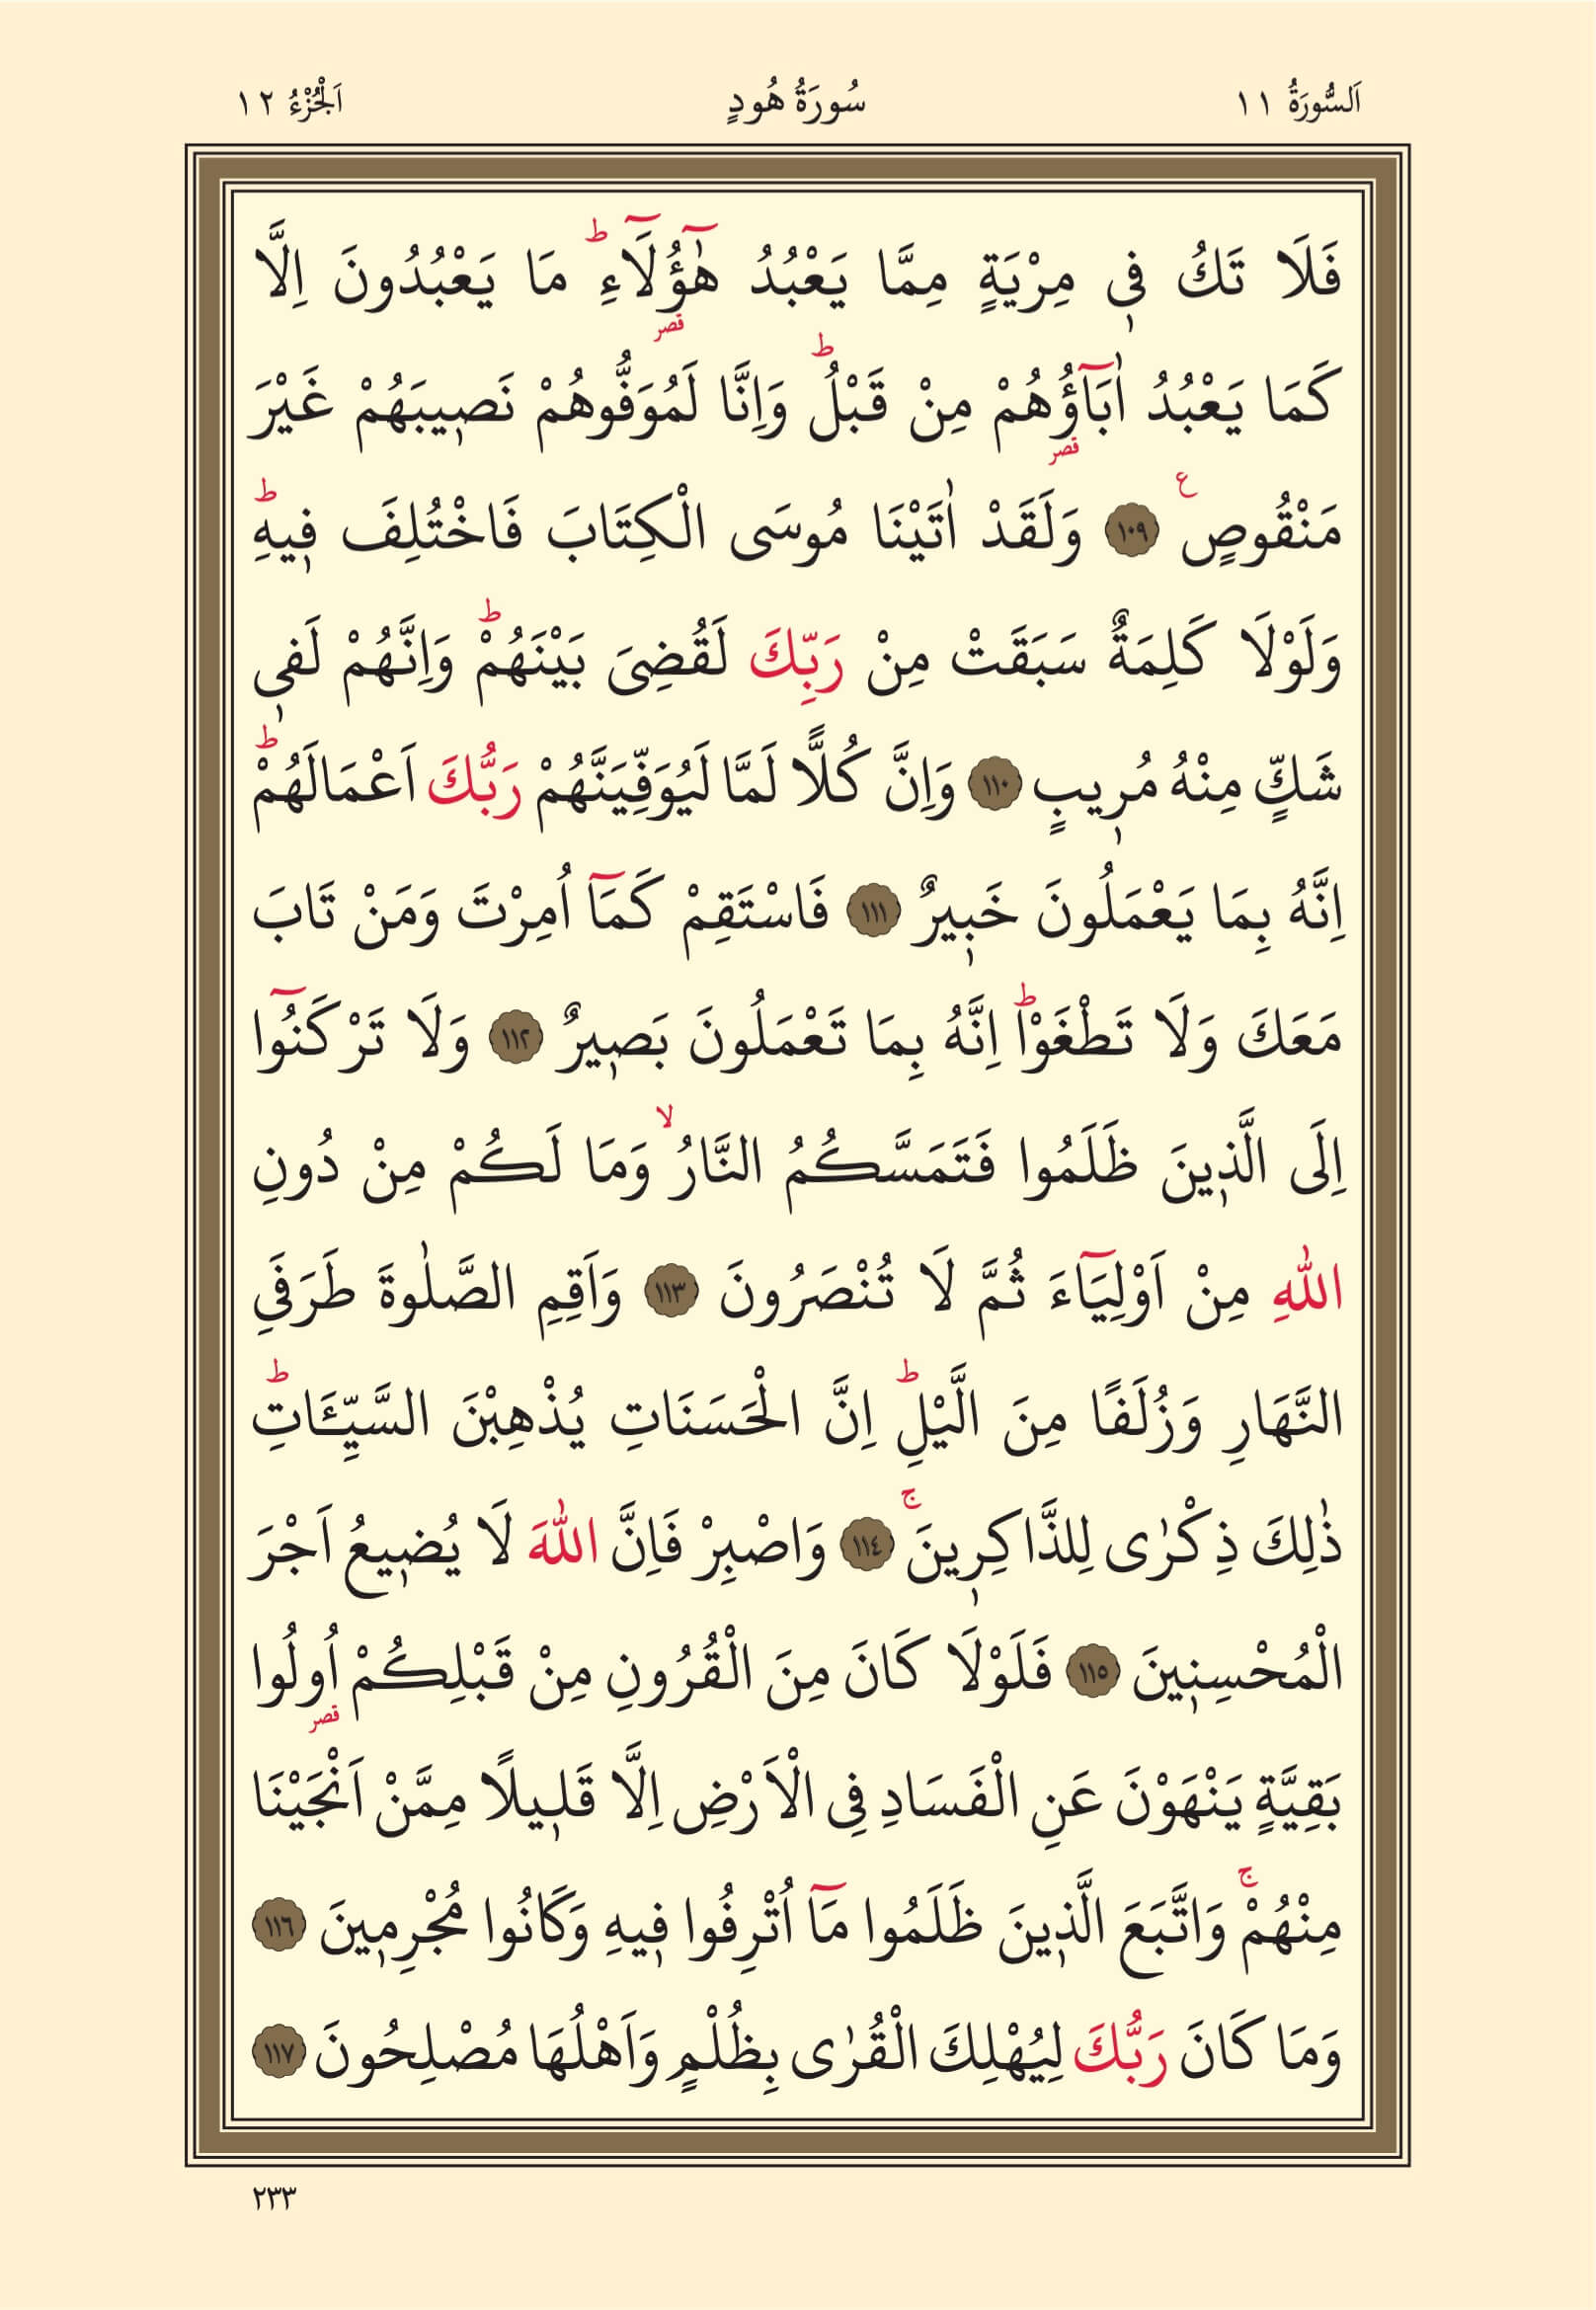 اَلسُّورَةُ ١١ سُورَةُ هُودٍ اَلْجُزْءُ ١٢
فَلَا تَكُ فٖى مِرْيَةٍ مِمَّا يَعْبُدُ هٰٓؤُ۬لَٓاءِۜ مَا يَعْبُدُونَ اِلَّا
كَمَا يَعْبُدُ اٰبَٓاؤُ۬هُمْ مِنْ قَبْلُۜ وَاِنَّا لَمُوَفُّوهُمْ نَصٖيبَهُمْ غَيْرَ
مَنْقُوصٍ ࣖ ﴿١٠٩﴾ وَلَقَدْ اٰتَيْنَا مُوسَى الْكِتَابَ فَاخْتُلِفَ فٖيهِۜ
وَلَوْلَا كَلِمَةٌ سَبَقَتْ مِنْ رَبِّكَ لَقُضِىَ بَيْنَهُمْۜ وَاِنَّهُمْ لَفٖى
شَكٍّ مِنْهُ مُرٖيبٍ ﴿١١٠﴾ وَاِنَّ كُلًّا لَمَّا لَيُوَفِّيَنَّهُمْ رَبُّكَ اَعْمَالَهُمْۜ
اِنَّهُ بِمَا يَعْمَلُونَ خَبٖيرٌ ﴿١١١﴾ فَاسْتَقِمْ كَمَٓا اُمِرْتَ وَمَنْ تَابَ
مَعَكَ وَلَا تَطْغَوْاۜ اِنَّهُ بِمَا تَعْمَلُونَ بَصٖيرٌ ﴿١١٢﴾ وَلَا تَرْكَنُٓوا
اِلَى الَّذٖينَ ظَلَمُوا فَتَمَسَّكُمُ النَّارُۙ وَمَا لَكُمْ مِنْ دُونِ
اللّٰهِ مِنْ اَوْلِيَٓاءَ ثُمَّ لَا تُنْصَرُونَ ﴿١١٣﴾ وَاَقِمِ الصَّلٰوةَ طَرَفَىِ
النَّهَارِ وَزُلَفًا مِنَ الَّيْلِۜ اِنَّ الْحَسَنَاتِ يُذْهِبْنَ السَّيِّـَٔاتِۜ
ذٰلِكَ ذِكْرٰى لِلذَّاكِرٖينَۚ ﴿١١٤﴾ وَاصْبِرْ فَاِنَّ اللّٰهَ لَا يُضٖيعُ اَجْرَ
الْمُحْسِنٖينَ ﴿١١٥﴾ فَلَوْلَا كَانَ مِنَ الْقُرُونِ مِنْ قَبْلِكُمْ اُو۬لُوا
بَقِيَّةٍ يَنْهَوْنَ عَنِ الْفَسَادِ فِى الْاَرْضِ اِلَّا قَلٖيلًا مِمَّنْ اَنْجَيْنَا
مِنْهُمْۚ وَاتَّبَعَ الَّذٖينَ ظَلَمُوا مَٓا اُتْرِفُوا فٖيهِ وَكَانُوا مُجْرِمٖينَ ﴿١١٦﴾
وَمَا كَانَ رَبُّكَ لِيُهْلِكَ الْقُرٰى بِظُلْمٍ وَاَهْلُهَا مُصْلِحُونَ ﴿١١٧﴾
٢٣٣